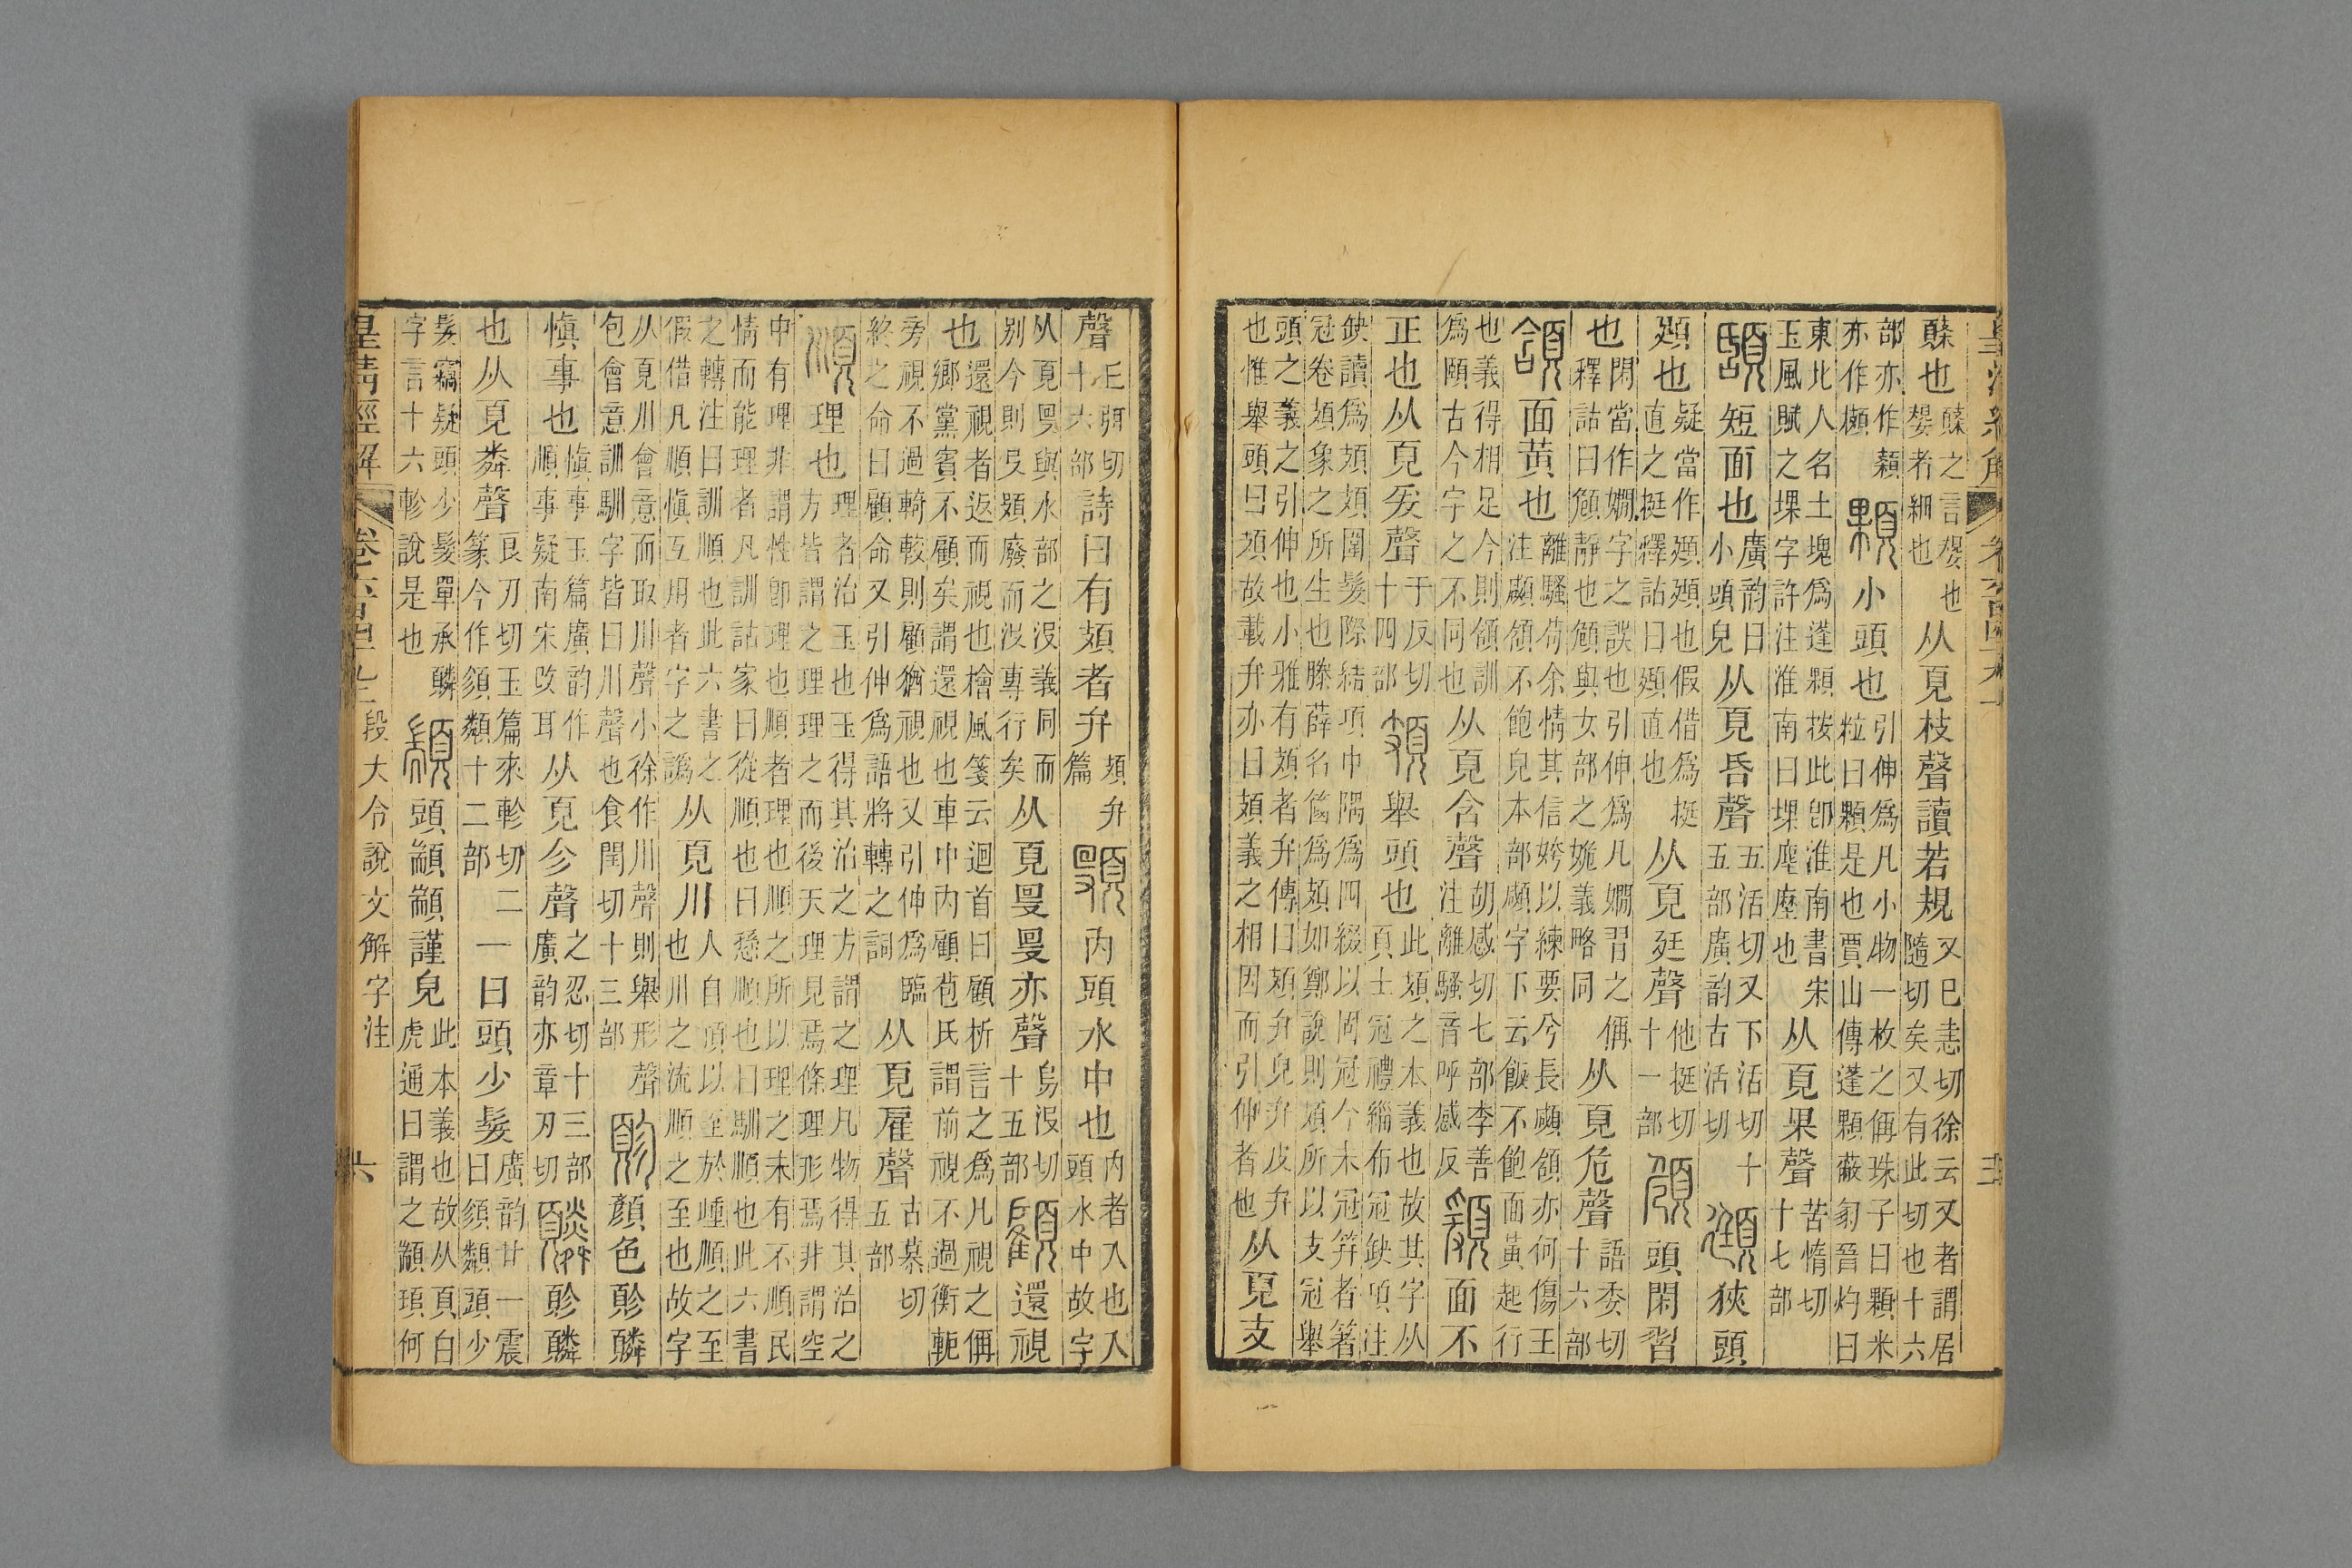 䫌也䫌之言嫢也嫢者細也从頁枝聲讀若規又已恚切徐云又者謂居隨切矣又有此切也十六
部亦作亦作顆小頭也引伸爲凡小物一枚之偁珠子曰顆米粒曰顆是也賈山傳蓬顆蔽冢晉灼曰
東北人名土塊爲蓬顆按此卽淮南書宋玉風賦之堁字許注淮南曰堁塵塺也从頁果聲苦惰切十七部
短面也廣韵曰小頭皃从頁昏聲五活切又下活切十五部廣韵古活切頲狹頭
頲也疑當作頲頲也假借爲挺直之挺釋詁曰頲直也从頁廷聲他挺切十一部頠頭閑習
也閑當作嫺字之誤也引伸爲凡嫺習之偁釋詁曰頠靜也頠與女部之姽義略同从頁危聲語委切十六部
頷面黃也離騷苟余情其信姱以練要兮長顑頷亦何傷王注顑頷不飽皃本部顑字下云飯不飽面黃起行
也義得相足今則頷訓爲頤古今字之不同也从頁含聲胡感切七部李善注離騷音呼感反面不
正也从頁爰聲于反切十四部頍舉頭也此頍之本義也故其字从頁士冠禮緇布冠缺項注
缺讀爲頍頍圍髮際結項中隅爲四綴以固冠今未冠笄者著冠卷頍象之所生也滕薛名蔮爲頍如鄭說則頍所以支冠舉
頭之義之引伸也小雅有頍者弁傳曰頍弁皃弁皮弁也惟舉頭曰頍故載弁亦曰頍義之相因而引伸者也从頁支
聲丘弭切十六部詩曰有頍者弁頍弁篇內頭水中也內者入也入頭水中故字
从頁𠬛與水部之沒義同而别今則𠬛廢而沒專行矣从頁𠬛𠬛亦聲烏沒切十五部顧還視
也還視者返而視也檜風箋云迴首曰顧析言之爲凡視之偁鄉黨賓不顧矣謂還視也車中內顧苞氏謂前視不過衡軛
旁視不過輢較則顧猶視也又引伸爲臨終之命曰顧命又引伸爲語將轉之詞从頁雇聲古慕切五部
順理也理者治玉也玉得其治之方謂之理凡物得其治之方皆謂之理理之而後天理見焉條理形焉非謂空
中有理非謂性卽理也順者理也順之所以理之未有不順民情而能理者凡訓詁家曰從順也曰愻順也曰馴順也此六書
之轉注曰訓順也此六書之假借凡順愼互用者字之譌从頁川人自頂以至於歱順之至也川之流順之至也故字
从頁川會意而取川聲小徐作川聲則舉形聲包會意訓馴字皆曰川聲也食閏切十三部㐱顏色㐱䫰
愼事也愼事玉篇廣韵作順事疑南宋改耳从頁㐱聲之忍切十三部廣韵亦章刃切㐱䫰
也从頁粦聲良刃切玉篇來軫切二篆今作䪴䫰十二部一曰頭少髮廣韵廿一震曰䪴䫰頭少
髮窮疑頭少髮單承䫰字言十六軫說是也顓頭顓顓謹皃此本義也故从頁白虎通曰謂之顓頊何
皇清經解卷六百四十九段大令說文解字注六